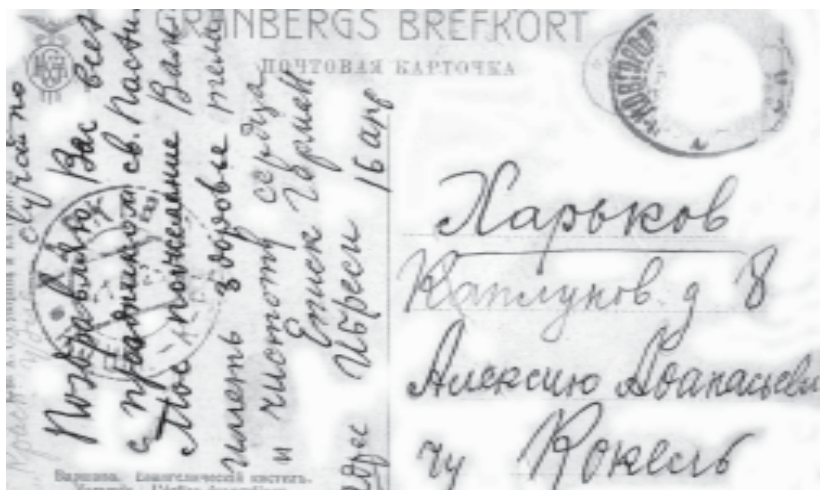 GRANBERGS BREFKORT
ПОЧТОВАЯ КАРТОЧКА
Поздравляю Вас всех
с праздником св. Пасхи.
Мое пожелание Вам
иметь здоровье тела
и чистоту сердца
Еписк Герман
адрес Ибреси 16 апр
Харьков
Каплунов. д 8
Алексию Афанасьеви
чу Кокель
Варшава. Евангелический костелъ.